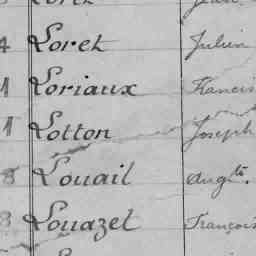 4 Loret Julien
1 Loriaux Francis
1 Lotton Joseph
8 Louail Augte.
3 Louazel François